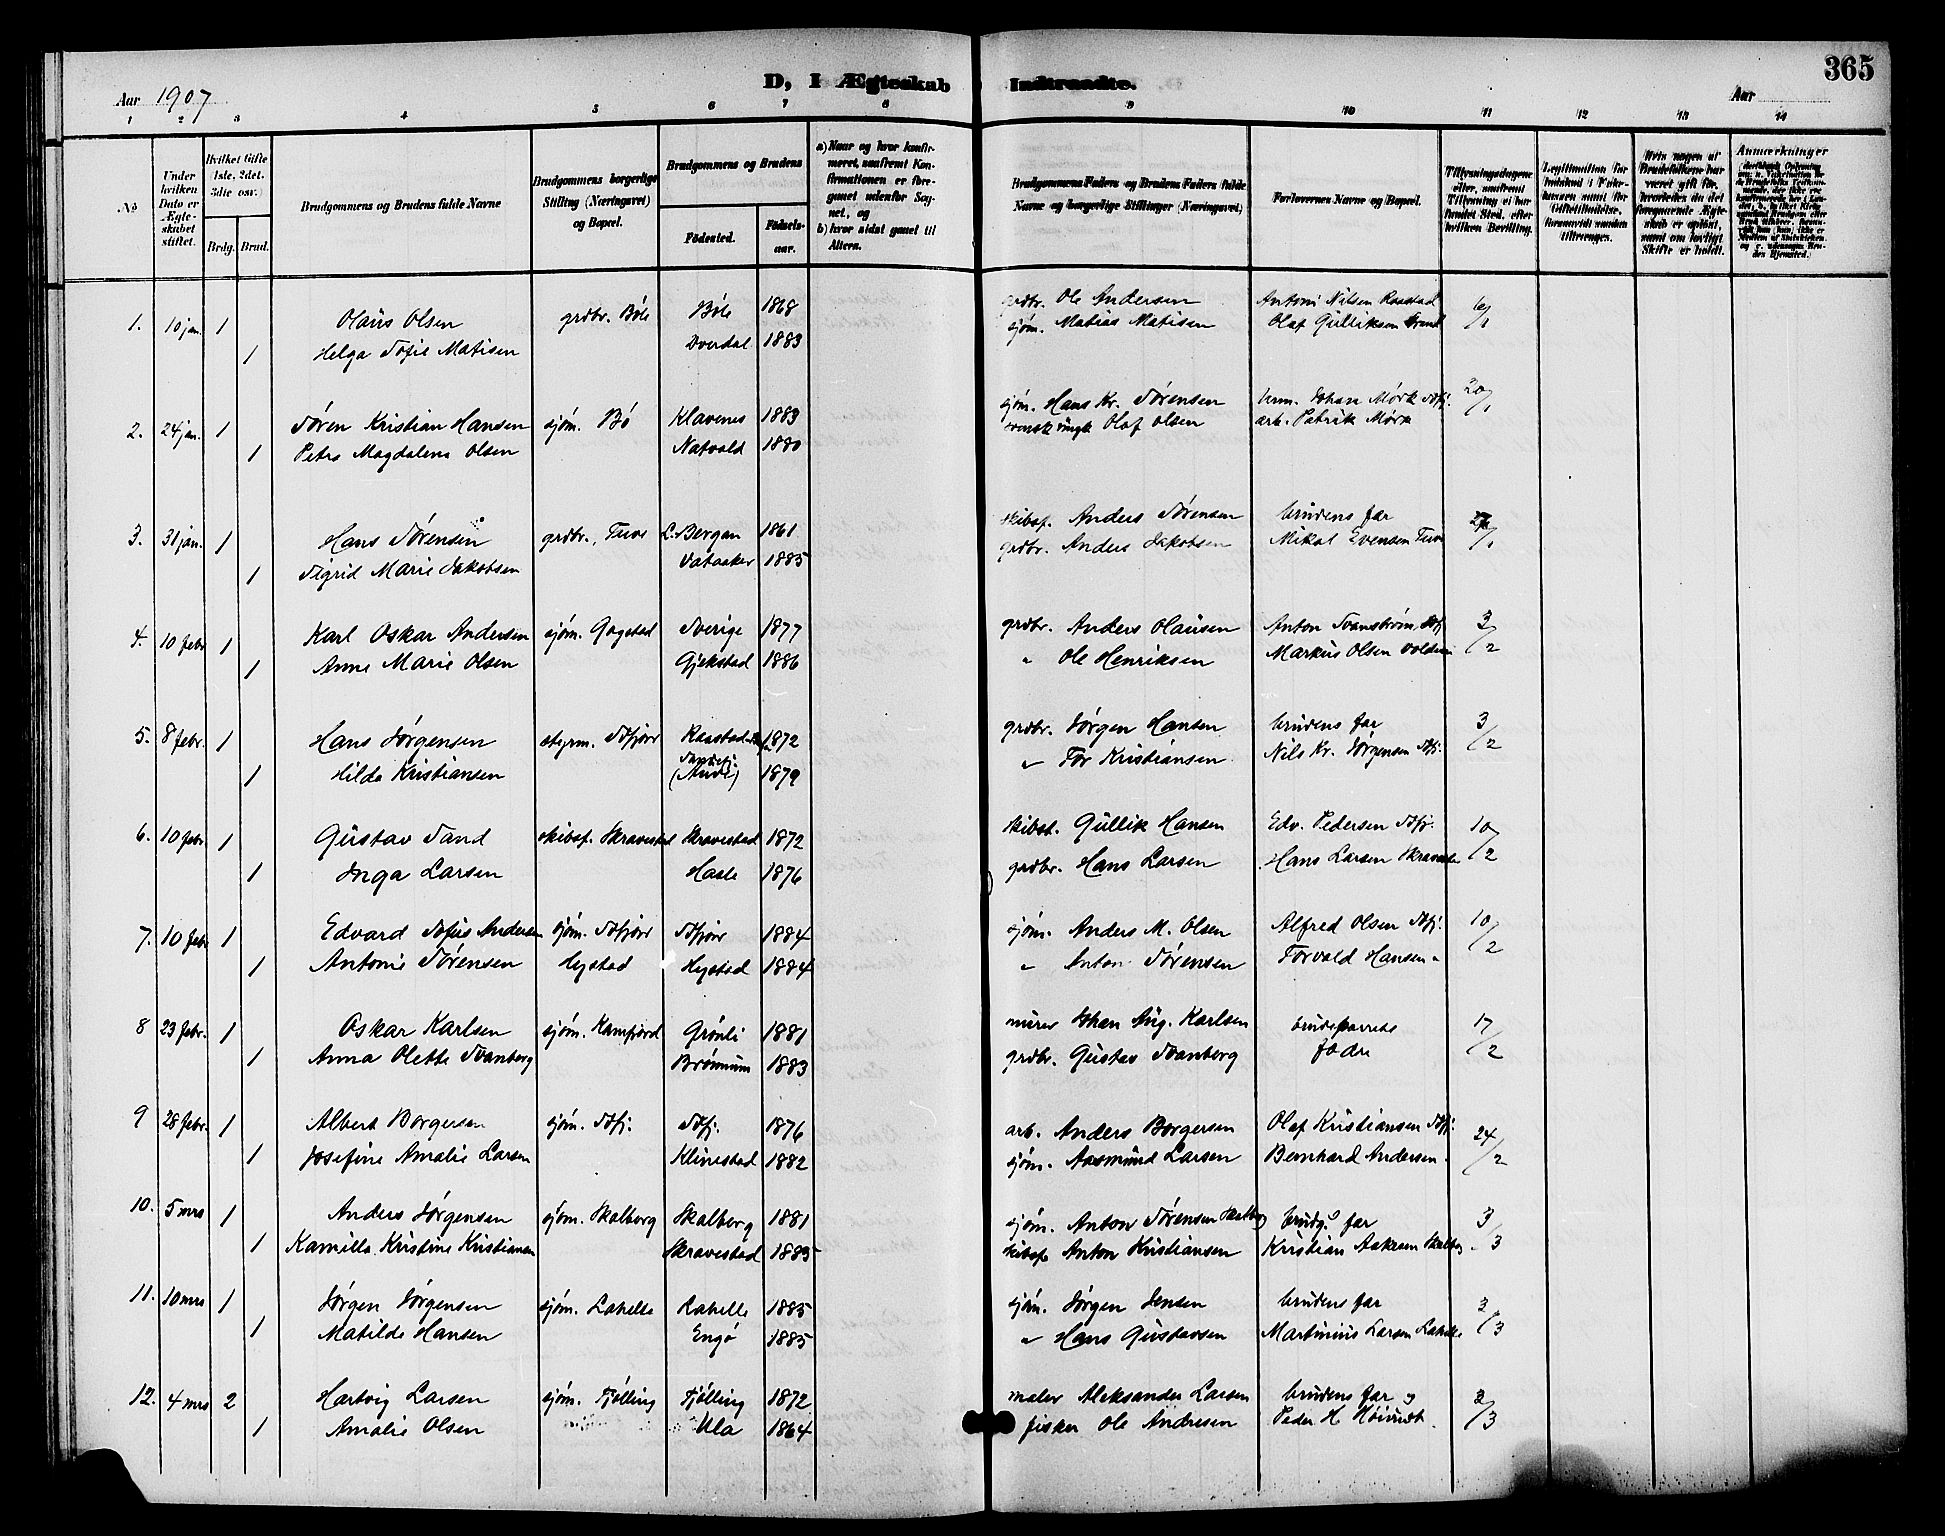 365
D, I Ægteskab Indtraadte.
Aar 1907
Aar
1 2 3 4 5 6 7 8 9 10 11 12 13 14
No
Under hvilken Dato er Ægteskabet stiftet.
Hvilket Gifte (1ste, 2det, 3die osv.)
Brdg. Brud.
Brudgommens og Brudens fulde Navne
Brudgommens borgerlige Stilling (Næringsvei) og Bopæl.
Brudgommens og Brudens
Fødested.
Fødselsaar.
a) Naar og hvor konfirmeret, nanfremt Konfirmationen er foregaaet udenfor Sognet, og
b) hvor sidst gaaet til Alters.
Brudgommens Faders og Brudens Faders fulde Navne og borgerlige Stillinger (Næringsvei)
Forlovernes Navne og Bopæl.
Anmærkninger
1. 10 jan. 1 Olaus Olsen grdbr. Bøle Bøle 1868 grdbr. Ole Andersen Antoni Nilsen Raastad 6/1
1 Helga Sofie Matisen Overdal 1883 sjøm. Matias Matisen Olaf Gulliksen
2. 24 jan. 1 Søren Kristian Hansen sjøm. Bø Klavenes 1883 sjøm. Hans Kr. Sørensen Johan Mørk Sdfj. 20/1
1 Petra Magdalena Olsen Natvald 1880 Olaf Olsen arb. Patrik Mørk
3. 31 jan. 1 Hans Sørensen grdbr., Tuve L. Bergan 1861 skibsf. Anders Sørensen brudens far /1
1 Sigrid Marie Jakobsen Vataaker 1885 grdbr. Anders Jakobsen Mikal Evensen Tuve
4. 10 febr 1 Karl Oskar Andersen sjøm. Gogstad Sverige 1877 grdbr. Anders Olausen Anton Svanstrøm, Sdfj 3/2
1 Anne Marie Olsen Gjekstad 1886 " Ole Henriksen Markus Olsen
5. 8 febr. 1 Hans Jørgensen styrm. Sdfjord Raastad 1872 grdbr. Jørgen Hansen brudens far 3/2
1 Hilda Kristiansen Sandefj. (Auve) 1879 " Tor Kristiansen Nils Kr. Jørgensen Sdfj.
6. 10 febr 1 Gustav Sand skibsf. Skravestad Skravestad 1872 skibst. Gullik Hansen Edv. Pedersen Sdfj. 10/2
1 Inga Larsen Hasle 1876 grdbr. Hans Larsen Hans Larsen
7. 10 febr 1 Edvard Sofus Andersen sjøm. Sdfjord Sdfjord 1884 sjøm. Anders M. Olsen Alfred Olsen Sdfj. 10/2
1 Antonie Sørensen Hystad Hystad 1884 " Anton Sørensen Torvald Hansen "
8 23 febr. 1 Oskar Karlsen sjøm. Kamfjord Grønli 1881 murer Johan Aug. Karlsen brudeparrets 17/2
1 Anna Olette Svanberg Brønnum 1883 grdbr. Gustav Svanberg fødre
9 28 febr. 1 Albert Borgersen sjøm. Sdfj. Sdfj. 1876 arb. Anders Borgersen Olaf Kristiansen Sdfj. 24/2
1 Josefine Amalie Larsen Klinestad 1882 sjøm. Aasmund Larsen Bernhard Andersen
10. 5 mrs 1 Anders Jørgensen sjøm. Skalberg Skalberg 1881 sjøm. Anton Sørensen Skalberg brudg.s far 3/3
1 Kamilla Kristine Kristiansen Skravestad 1885 skibsf Anton Kristiansen Kristian
11. 10 mrs 1 Jørgen Jørgensen sjøm. Lahelle Lahelle 1885 sjøm. Jørgen Jensen brudens far 3/3
1 Matilde Hansen Engø 1885 " Hans Gustavsen Martinius Larsen Lahelle
12. 4 mrs 2 Hartvig Larsen sjøm. Tjølling Tjølling 1872 maler Aleksander Larsen brudens far og 3/3
1 Amalie Olsen Ula 1864 fisker Ole Andresen Peder H